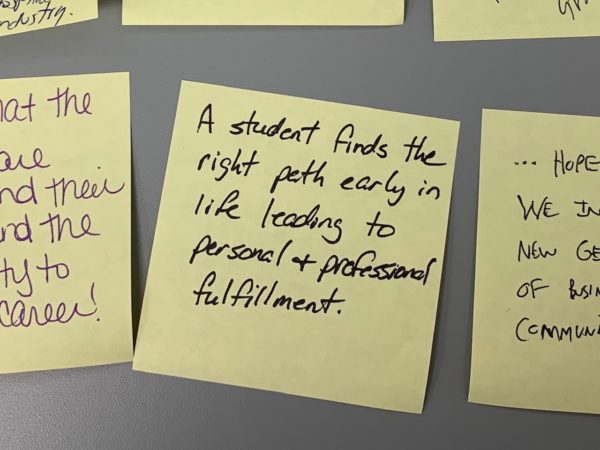 industry.
hat the
are
nd their
nd the
ty to
career!
A student finds the
right path early in
life leading to
personal + professional
fulfillment.
... HOPE
WE IN
NEW GE
OF BUSIN
COMMUN